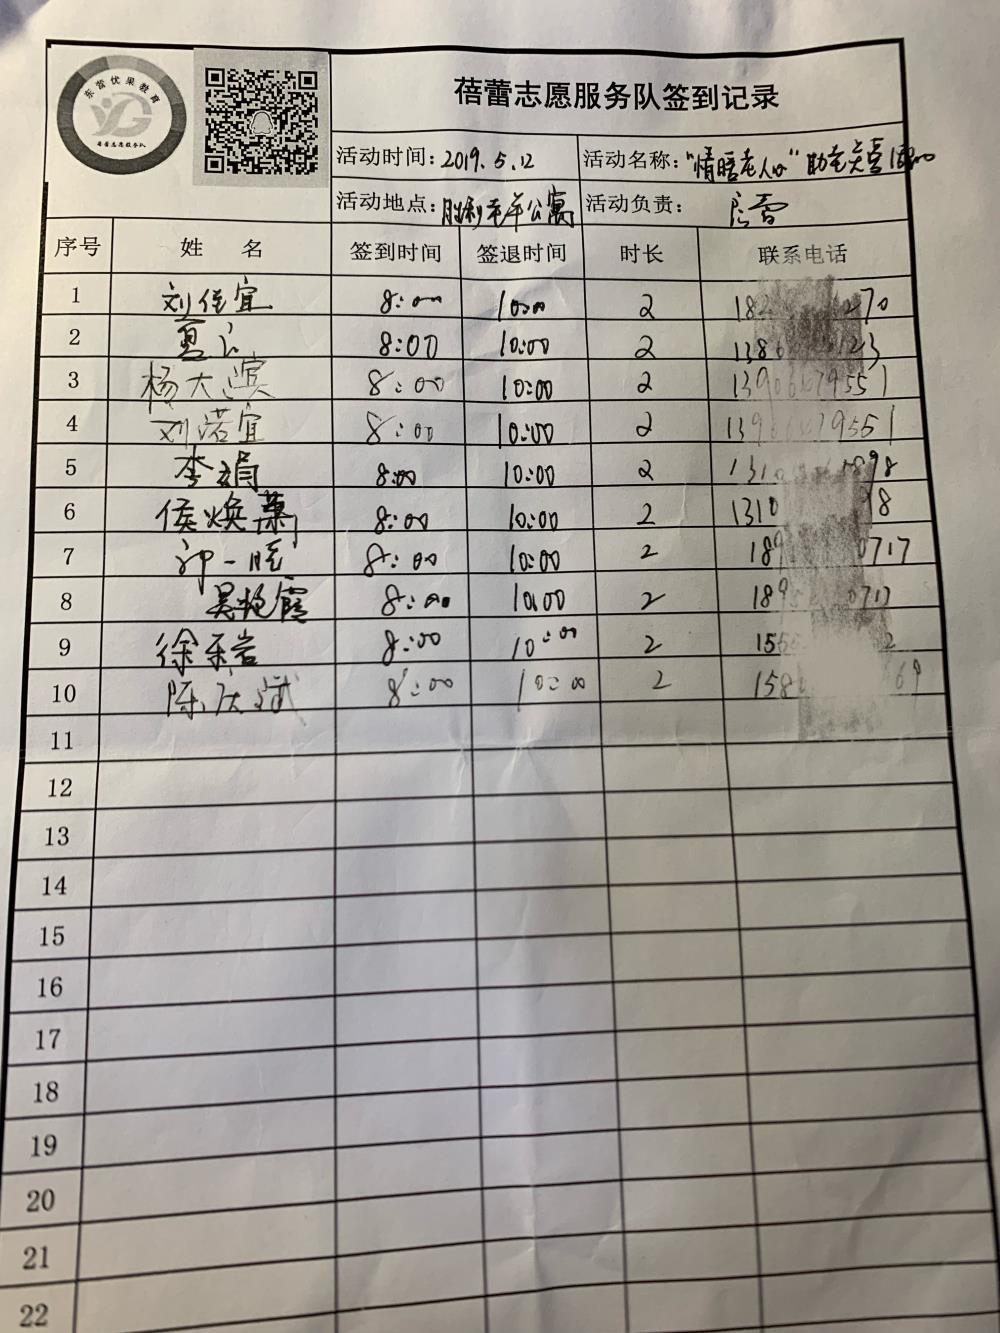 东营优果教育
蓓蕾志愿服务队
蓓蕾志愿服务队签到记录
活动时间：2019.5.12 活动名称：“情暖老人心”助老
活动地点：胜利老年公寓 活动负责：
序号 姓 名 签到时间 签退时间 时长 联系电话
1 刘佳宜 8:00 10:00 2 182 70
2 8:00 10:00 2 1386 123
3 杨大滨 8:00 10:00 2 139 79551
4 刘诺宜 8:00 10:00 2 139 79551
5 李娟 8:00 10:00 2 131 898
6 侯焕 8:00 10:00 2 1310 98
7 一 8:00 10:00 2 189 0717
8 吴艳霞 8:00 10:00 2 189 0717
9 徐 岩 8:00 10:00 2 155 2
10 陈 斌 8:00 10:00 2 158 69
11
12
13
14
15
16
17
18
19
20
21
22